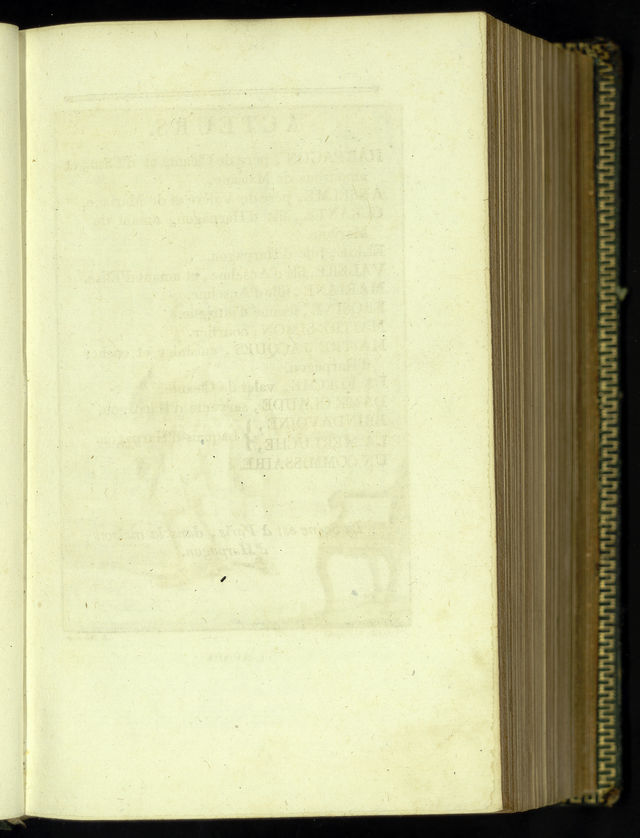 ACTEURS.
HARPAGON, père de Cléante et d'Élise, et
amoureux de Mariane.
ANSELME, père de Valère et de Mariane.
CLÉANTE, fils d'Harpagon, amant de
Mariane.
ÉLISE, fille d'Harpagon.
VALÈRE, fils d'Anselme, et amant d'Élise.
MARIANE, fille d'Anselme.
FROSINE, femme d'intrigue.
MAITRE SIMON, courtier.
MAITRE JACQUES, cuisinier et cocher
d'Harpagon.
LA FLÈCHE, valet de Cléante.
DAME CLAUDE, servante d'Harpagon.
BRINDAVOINE,
LA MERLUCHE, } laquais d'Harpagon.
UN COMMISSAIRE.
La scène est à Paris, dans la maison
d'Harpagon.